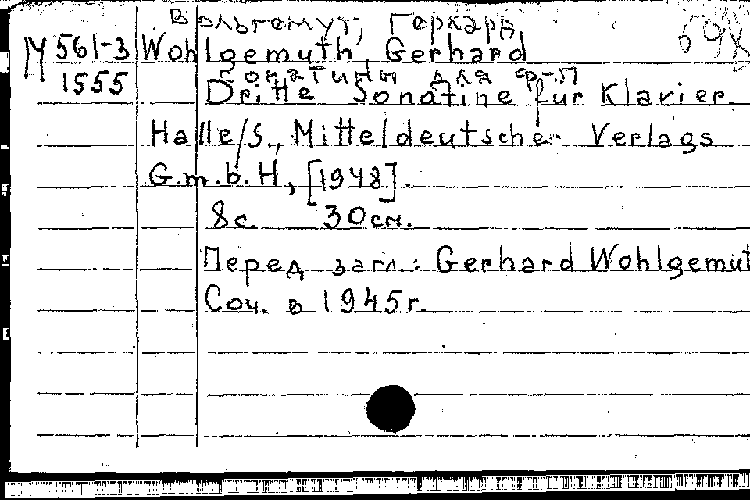 Вольгемут, Герхард
М 561-3 Wohlgemuth, Gerhard
1555 Сонатины для ф-п
Dritte Sonatine für Klavier.
Halle/S., Mitteldeutscher Verlags
G.m.b.H, [1948].
8с. 30см.
Перед загл.: Gerhard Wohlgemut
Соч. в 1945г.